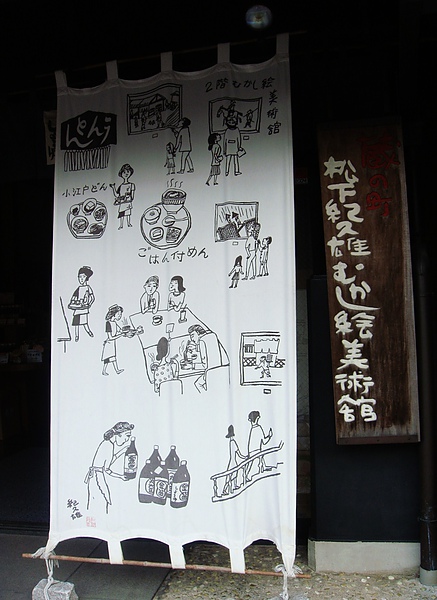 2階むかし絵
美術館
うどん
小江戸どん
ごはん付めん
紀久雄
松下紀久雄むかし絵美術館